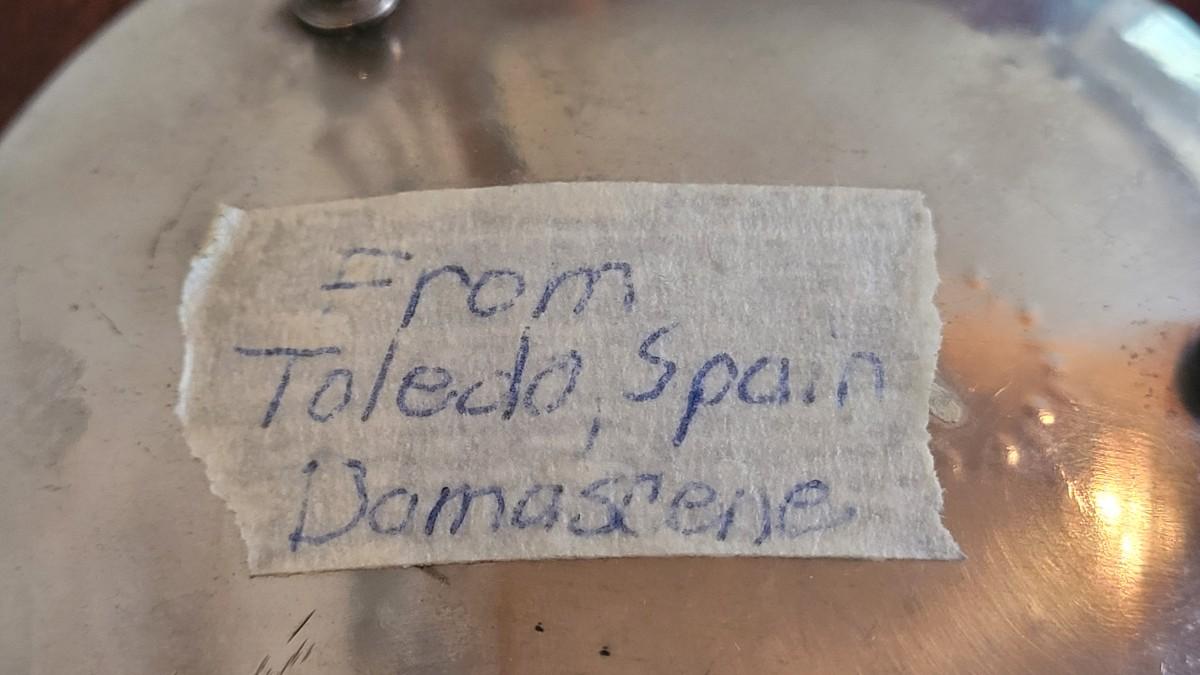 From
Toledo, Spain
Damascene